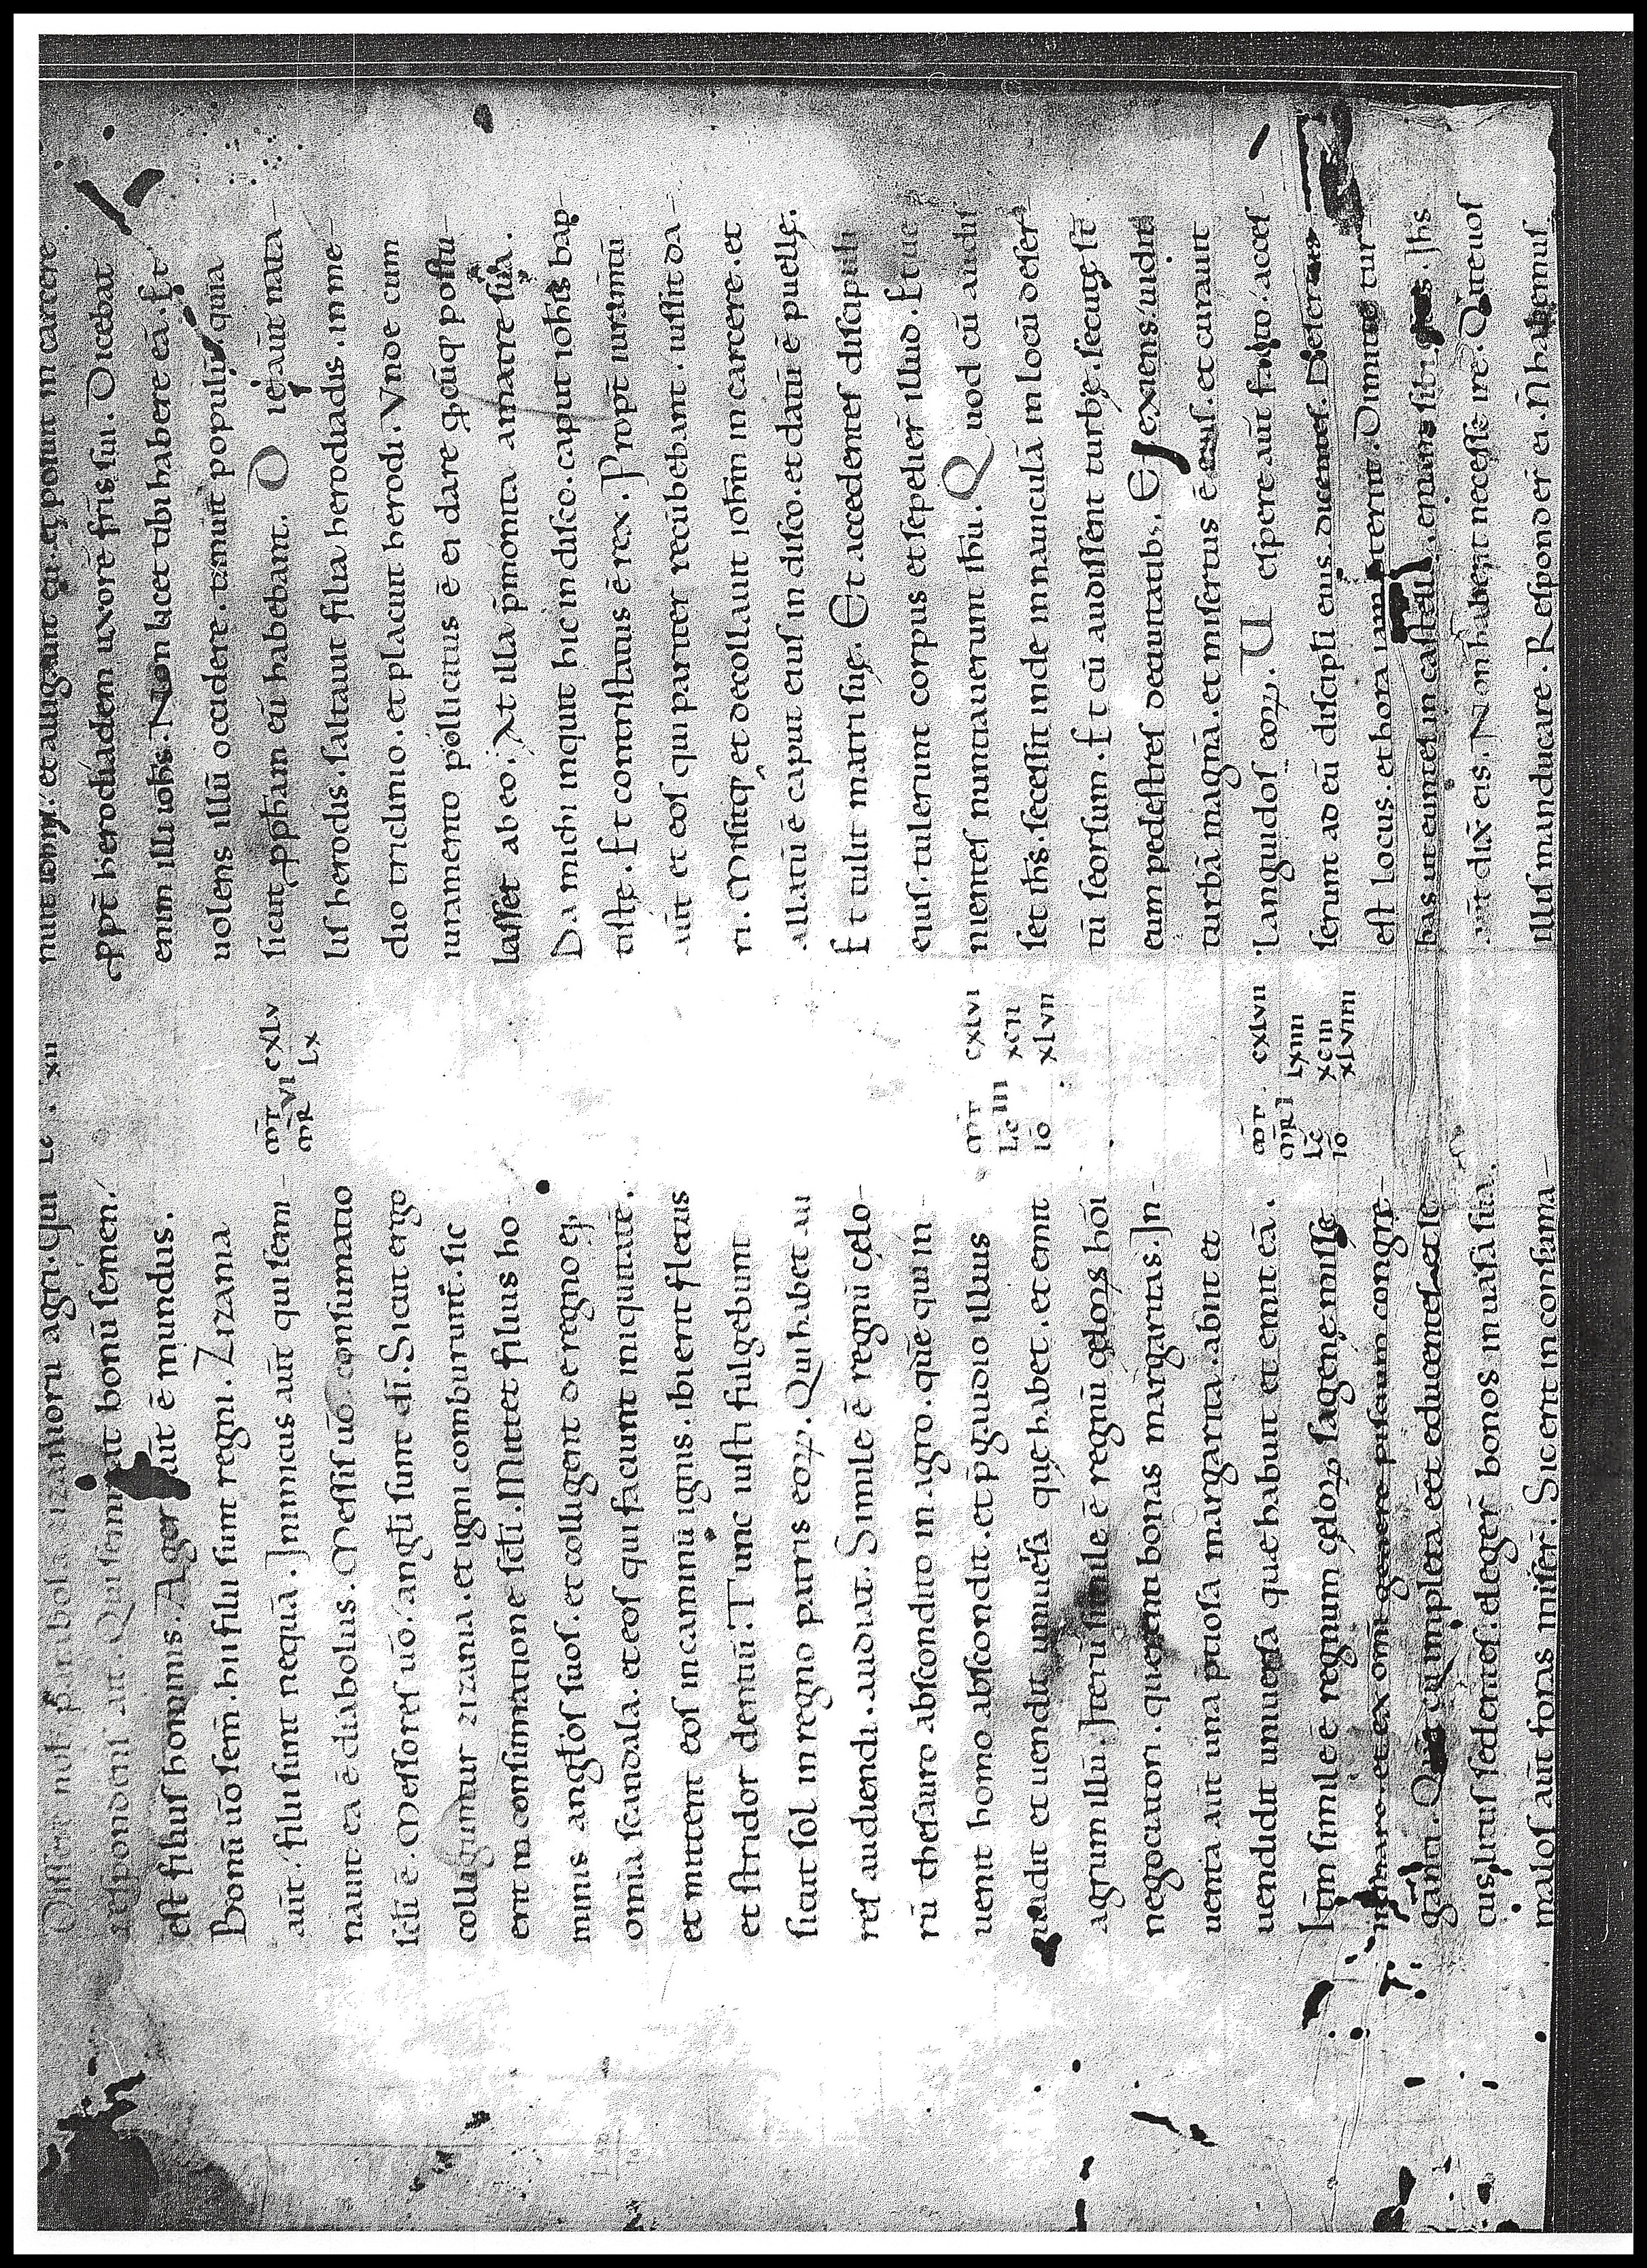 Disser nob parabolā zizanioru agri. Qui
respondens ait. Qui seminat bonū semen
est filius hominis. Ager aut̄ ē mundus.
Bonū uō sem̄. hii filii sunt regni. Zizania
aut̄ filii sunt nequā. Inimicus aut̄ qui semi-
nauit ea ē diabolus. Messis uō consummatio
sc̄li ē. Messores uō angli sunt di. Sicut ergo
colliguntur zizania. et igni comburunt. sic
erit in consummatione sc̄li. Mittet filius ho
minis angłos suos. et colligent de regno eꝰ
omnia scandala. et eos qui faciunt iniquitatē.
et mittent eos in caminū ignis. ibi erit fletus
et stridor dentiū. Tunc iusti fulgebunt
sicut sol in regno patris eoꝝ. Qui habet au
res audiendi. audiat. Simile ē regnū cęlo-
rū thesauro abscondito in agro. quē qui in-
uenit homo abscondit. et p̄ gaudio illius
uadit et uendit uniuersa quę habet. et emit
agrum illū. Iterū simile ē regnū cęloꝝ hōi
negociatori. querenti bonas margaritas. In-
uenta aut̄ una p̄tiosa margarita. abiit et
uendidit uniuersa que habuit et emit eā.
Itm̄ simile ē regnum cęloꝝ sagenę missę
in mare et ex omi genere pisciuū congre-
ganti. Quā cū impleta eēt educentes et se
cus litus sedentes. eleger̄ bonos in uasa sua.
malos aut̄ foras miser̄. Sic erit in consuma-
Lc xii
m̄r cxlv
m̄R VI Lx
m̄r cxlvi
Lc III xcii
iō xlvii
m̄r cxlvii
m̄R I Lxiiii
Lc xciii
iō xlviiii
nuit iohēs. et alligauit eū. et posuit in carcere
ꝓpt̄ herodiadem uxorē fr̄is sui. Dicebat
enim illi iohs. Non licet tibi habere eā. Et
uolens illū occidere. timuit populū quia
sicut ꝓph̄am eū habebant. Die aut̄ nata-
lis herodis. saltauit filia herodiadis. in me-
dio triclinio. et placuit herodi. Vnde cum
iuramento pollicitus ē ei dare qd̄cūq postu-
lasset ab eo. At illa p̄monita a matre sua.
Da michi inquit hic in disco. caput iohīs bap-
tiste. Et contristatus ē rex. Propt̄ iuramtū
aut̄ et eos qui pariter recūbebant. iussit da-
ri. Misitq et decollauit iohm̄ in carcere. et
allatū ē caput eius in disco. et datū ē puellę.
Et tulit matri suę. Et accedentes discipuli
eius. tulerunt corpus et sepelier̄ illud. Et ue
nientes nuntiauerunt ihū. Quod cū audis
set ihs̄. secessit inde in nauiculā in locū deser-
tū seorsum. Et cū audissent turbę. secutę st̄
eum pedestres de ciuitatib;. Et exiens uidit
turbā magnā. et misertus ē eius. et curauit
languidos eoꝝ. Vespere aut̄ facto acces-
serunt ad eū discipli eius dicentes. Desertus
est locus. et hora iam p̄terint. Dimitte tur
bas ut euntes in castella. emant sibi escas. Ihs
aut̄ dix̄ eis. Non habent necesse ire. Date uos
illis manducare. Responder̄ ei. N̄ habemus